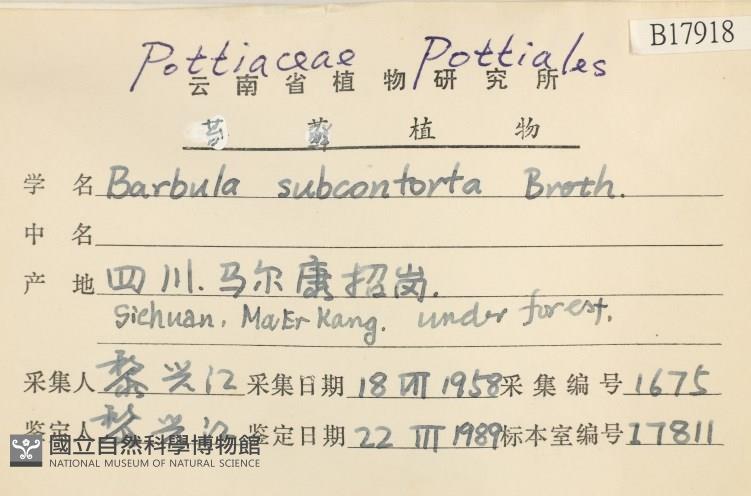 B17918
Pottiaceae Pottiales
云南省植物研究所
苔藓植物
学名 Barbula subcontorta Broth.
中名
产地 四川.马尔康招岗.
Sichuan. MaErKang. under forest.
采集人 黎兴江 采集日期 18 VII 1958 采集编号 1675
鉴定人 黎兴江 鉴定日期 22 III 1989 标本室编号 17811
國立自然科學博物館
NATIONAL MUSEUM OF NATURAL SCIENCE